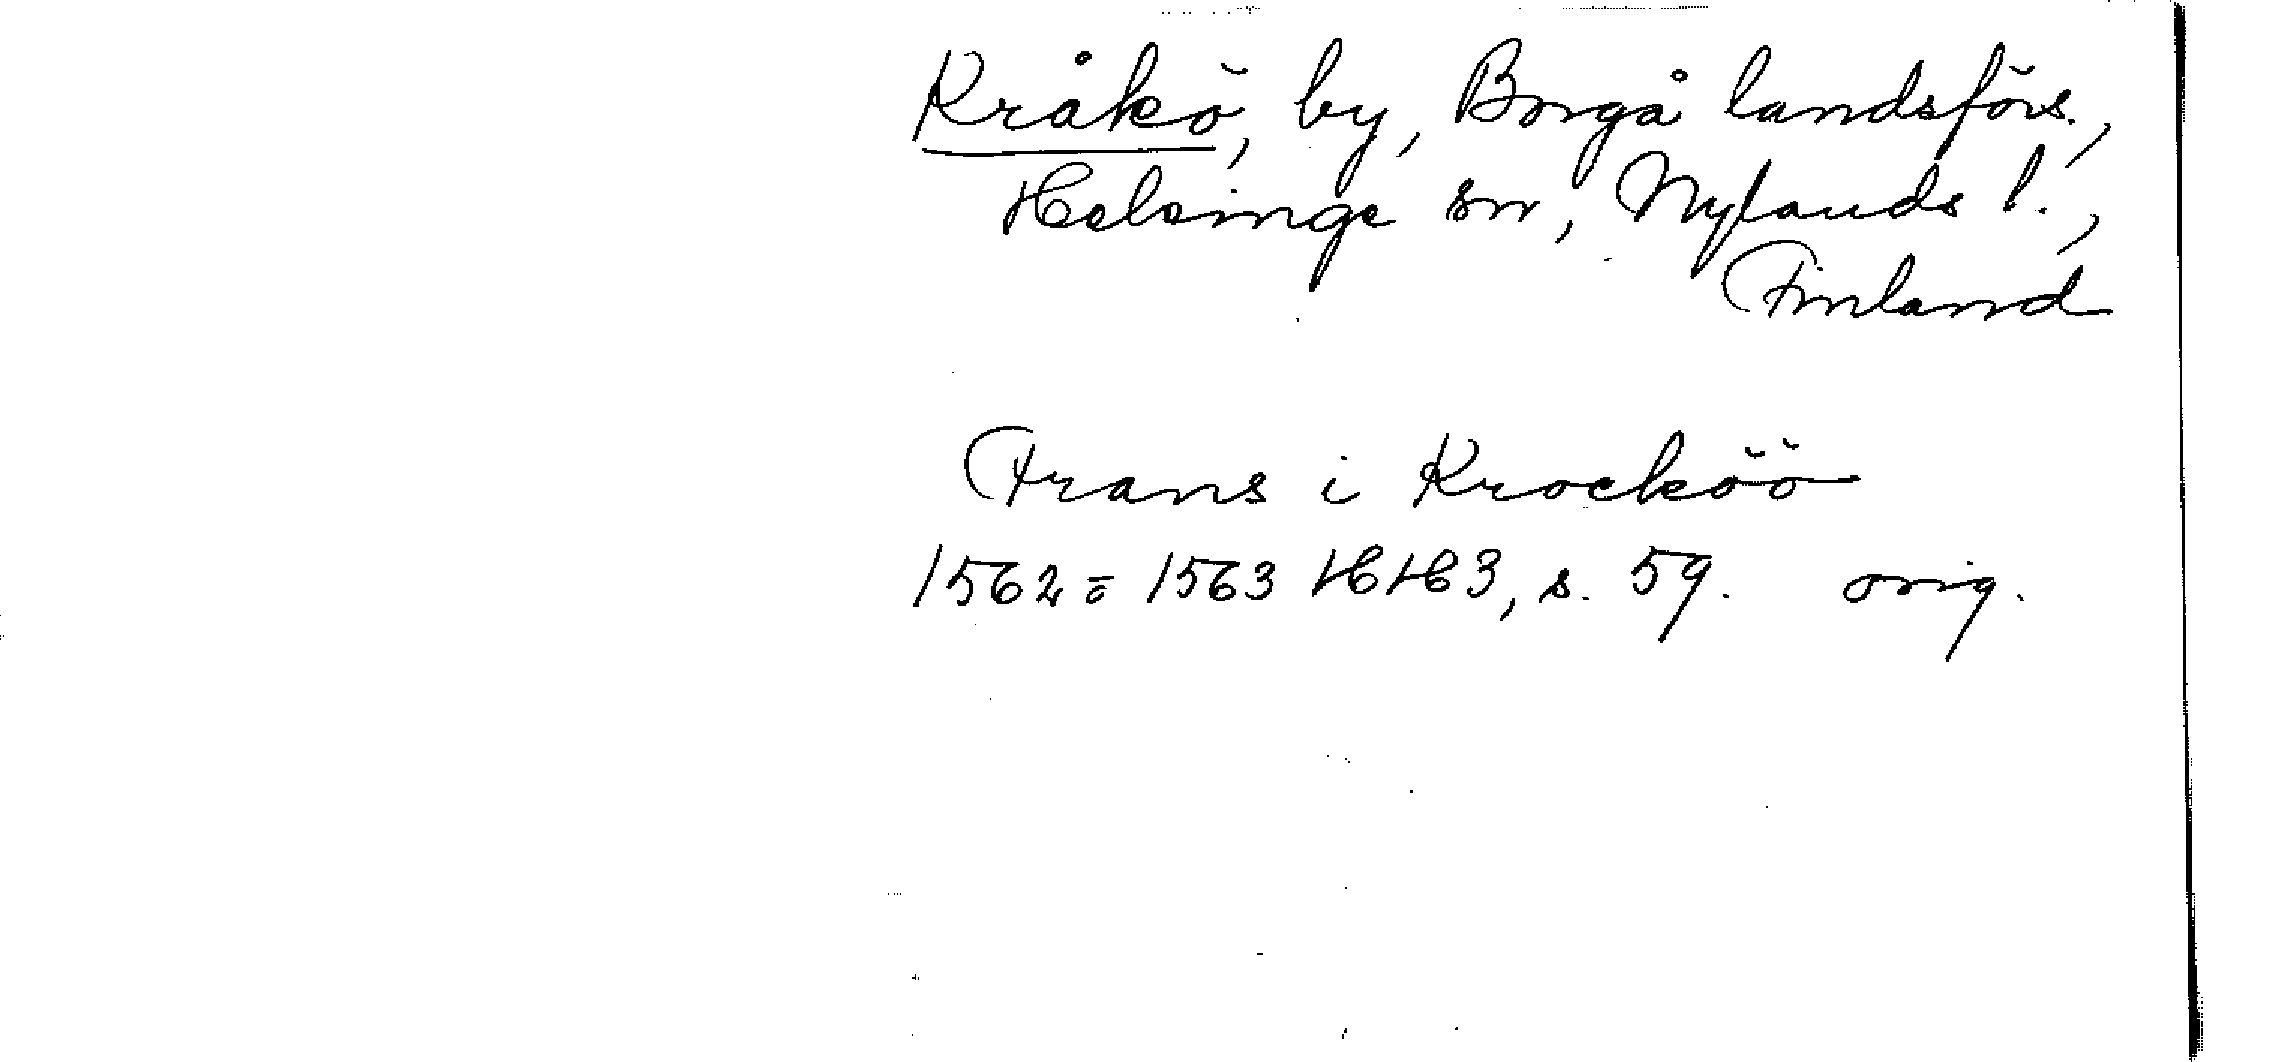 Kråkö, by, Borgå landsförs.,
Helsinge sn, Nylands l.,
Finland
Frans i Krocköö
1562 = 1563 HH3, s. 59. orig.